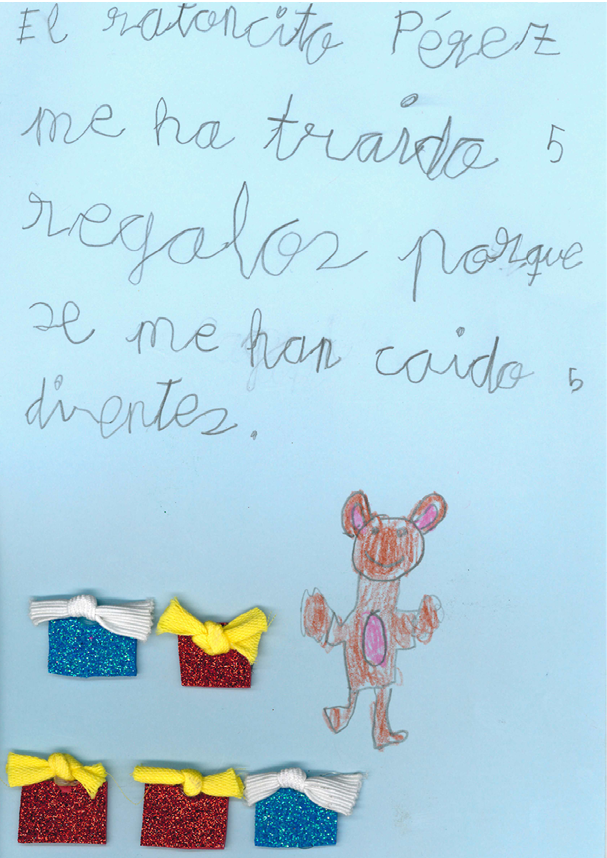 El ratoncito Pérez
me ha traido 5
regalos porque
se me han caido 5
dientes.